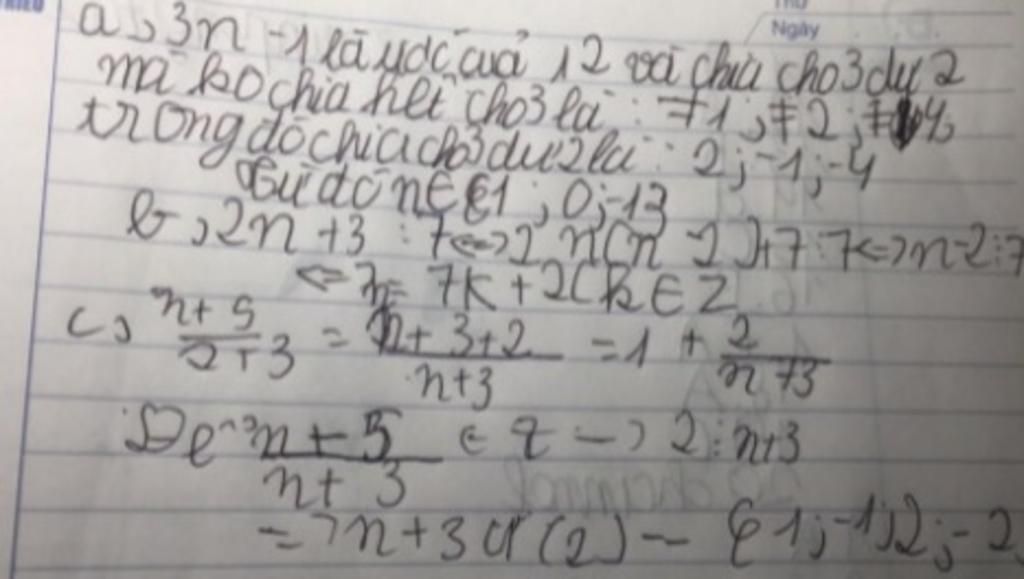 Thứ
Ngày
a, 3n -1 là ước của 12 và chia cho 3 dư 2
mà ko chia hết cho 3 là : ∓1 ; ∓2 ; ∓4
trong đó chia cho 3 dư 2 là : 2 ; -1 ; -4
Từ đó n ∈ {1 ; 0 ; -1}
b, 2n +3 : 7 <=> 2 n(n - 2)+7 : 7 <=> n-2:7
<=> n = 7k + 2 (k ∈ Z
c, n+5 / n+3 = n+3+2 / n+3 = 1 + 2 / n+3
Để n+5 / n+3 ∈ Z -> 2 : n+3
=> n+3 Ư (2) - {1 ; -1 ; 2 ; -2